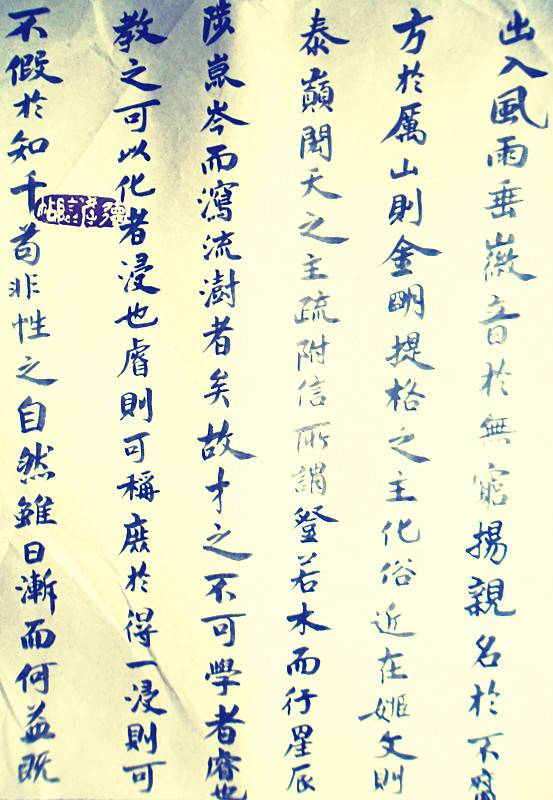 出入風雨垂徽音於無窮揚親名於不腐
方於厲山則金明提格之主化俗近在姬文則
泰巔閎天之主疏附信所謂登若木而行星辰
陟崑岑而瀉流澍者矣故才之不可學者睿也
教之可以化者浸也睿則可稱庶於得一浸則可
不假於知千苟非性之自然雖日漸而何益既